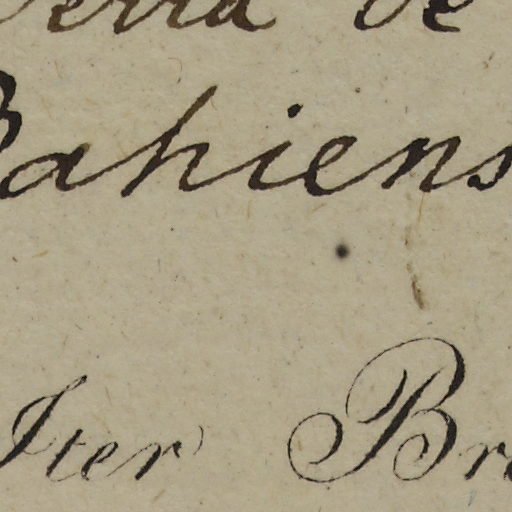 Terra de
Bahiens
Iter Bra